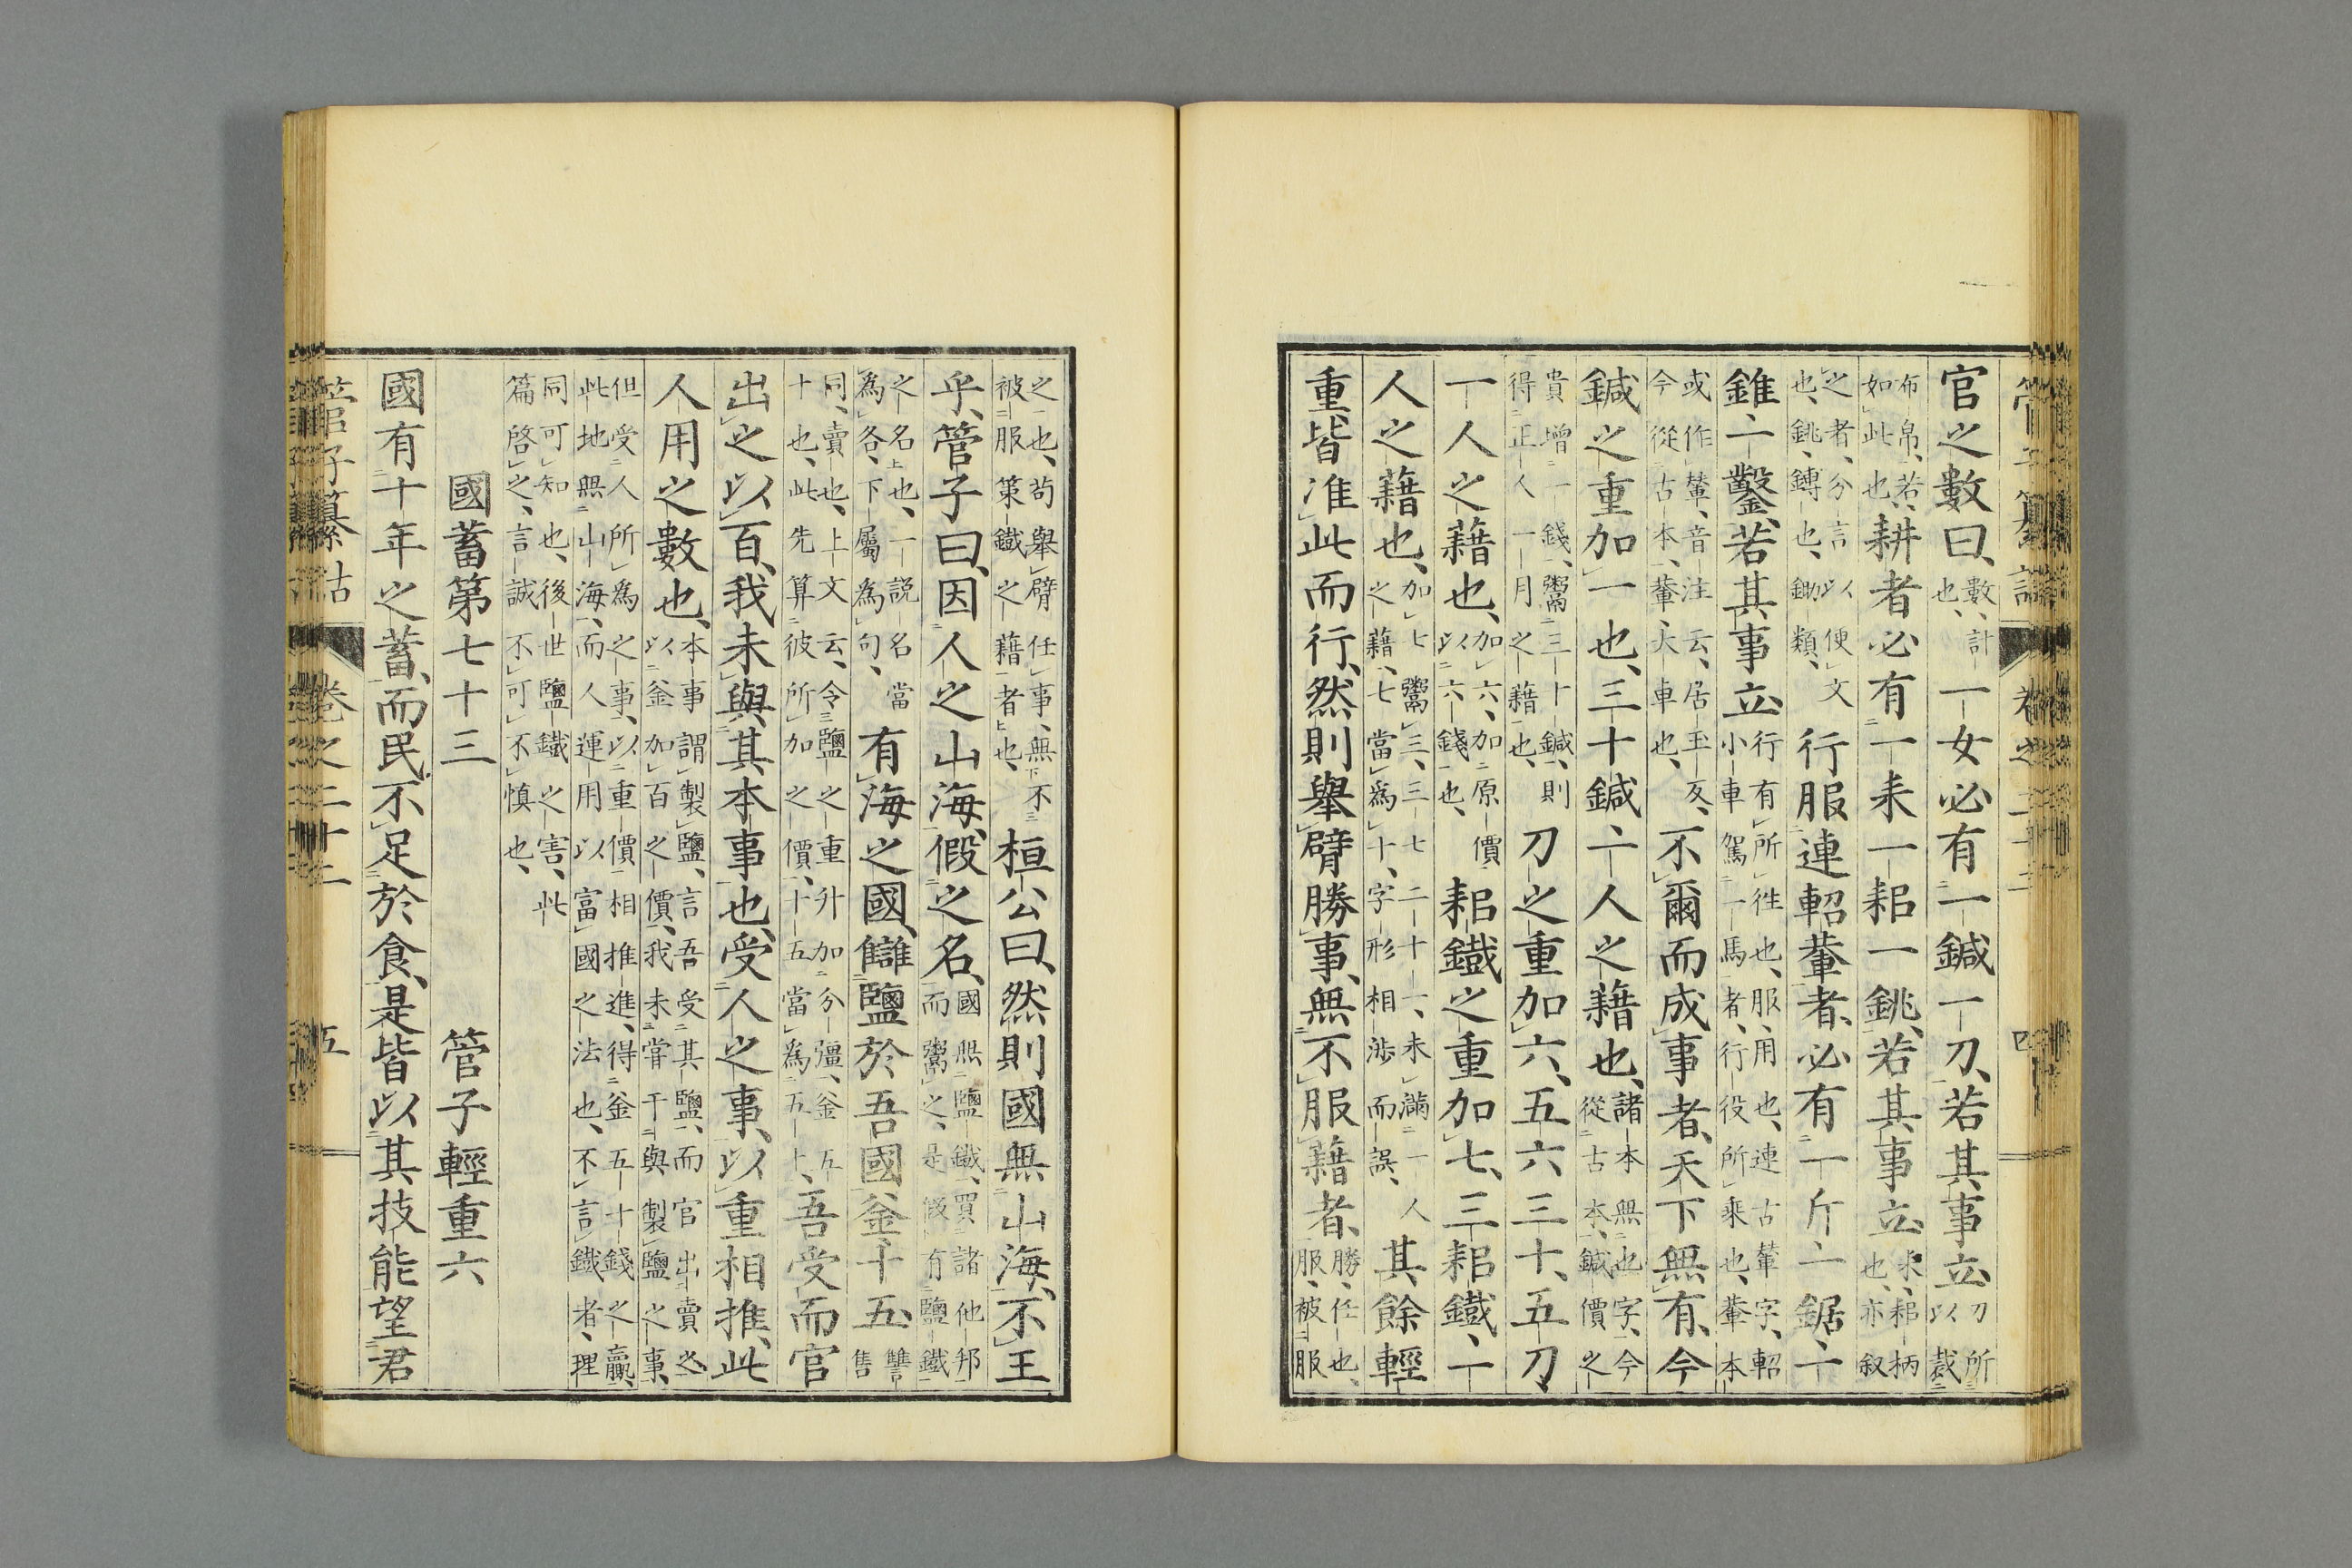 管子纂詁 卷之二十二 四
官之數曰、數、計也、一女必有一鍼一刀、若其事立、刀所以裁
布帛、若、如此也、耕者必有一耒一耜一銚、若其事立、耒、耜柄也、亦叙
之者、分言以便文也、銚、鎛也、鋤類、行服連軺輂者、必有一斤一鋸、一
錐、一鑿、若其事立、行有所徃也、服、用也、連古輦字、軺小車駕一馬者、行役所乘也、輂本
或作輦、音注云、居玉反、今從古本、輂、大車也、不爾而成事者、天下無有、今
鍼之重加一也、三十鍼、一人之藉也、諸本無也字、今從古本、鍼價之
貴增一錢、鬻三十鍼、則得正人一月之藉也、刀之重加六、五六三十、五刀
一人之藉也、加六、加原價以六錢也、耜鐵之重加七、三耜鐵、一
人之藉也、加七鬻三、三七二十一、未滿一人之藉、七當爲十、字形相渉而誤、其餘輕
重皆准此而行、然則舉臂勝事、無不服藉者、勝、任也、服、被服
之也、苟舉臂任事、無不被服第鐵之藉者也、桓公曰、然則國無山海、不王
乎、管子曰、因人之山海、假之名、國無鹽鐵、買諸他邦而鬻之、是假有鹽鐵
之名也、一説名當為各、下屬為句、有海之國、讎鹽於吾國、釜十五、讐售
同、賣也、上文云、令鹽之重升加分彊、釜五十也、此先算彼所加之價、十五當爲五十、吾受而官
出之以百、我未與其本事也、受人之事、以重相推、此
人用之數也、本事謂製鹽、言吾受其鹽、而官出賣之以釜加百之價、我未嘗干與製鹽之事、
但受人所為之事、以重價相推進、得釜五十錢之贏、此地無山海、而人運用以富國之法也、不言鐵者、理
同可知也、後世鹽鐵之害、此篇啓之、言誠不可不慎也、
國蓄第七十三 管子輕重六
國有十年之蓄、而民不足於食、是皆以其技能望君
管子纂詁 卷之二十二 五